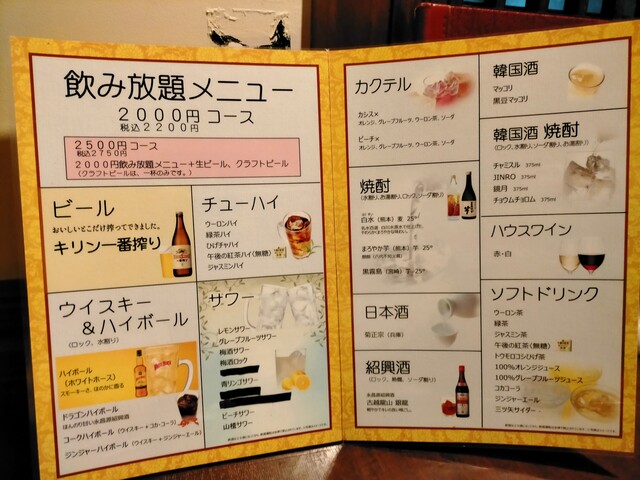 飲み放題メニュー
2000円コース
税込2200円
2500円コース
税込2750円
2000円飲み放題メニュー+生ビール、クラフトビール
(クラフトビールは、一杯のみです。)
ビール
おいしいとこだけ搾ってできました。
キリン一番搾り
チューハイ
ウーロンハイ
緑茶ハイ
ひげチャハイ
午後の紅茶ハイ(無糖)
ジャスミンハイ
ウイスキー
&ハイボール
(ロック、水割り)
ハイボール
(ホワイトホース)
スモーキーさ、ほのかに香る
ドラゴンハイボール
ほんのり甘い永昌源紹興酒
コークハイボール(ウイスキー+コカ・コーラ)
ジンジャーハイボール(ウイスキー+ジンジャーエール)
サワー
レモンサワー
グレープフルーツサワー
梅酒サワー
梅酒ロック
青リンゴサワー
ピーチサワー
山楂サワー
カクテル
カシス×
オレンジ、グレープフルーツ、ウーロン茶、ソーダ
ピーチ×
オレンジ、グレープフルーツ、ウーロン茶、ソーダ
焼酎
(水割り、お湯割り、ロック、ソーダ割り)
白水(熊本)麦 25°
まろやか芋(熊本)芋 25°
黒霧島(宮崎)芋 25°
日本酒
菊正宗(兵庫)
紹興酒
(ロック、熱燗、ソーダ割り)
永昌源紹興酒
古越龍山 銀龍
韓国酒
マッコリ
黒豆マッコリ
韓国酒 焼酎
(ロック、水割り、ソーダ割り、お湯割り)
チャミスル 375ml
JINRO 375ml
鏡月 375ml
チョウムチョロム 375ml
ハウスワイン
赤・白
ソフトドリンク
ウーロン茶
緑茶
ジャスミン茶
午後の紅茶(無糖)
トウモロコシひげ茶
100%オレンジジュース
100%グレープフルーツジュース
コカコーラ
ジンジャーエール
三ツ矢サイダー